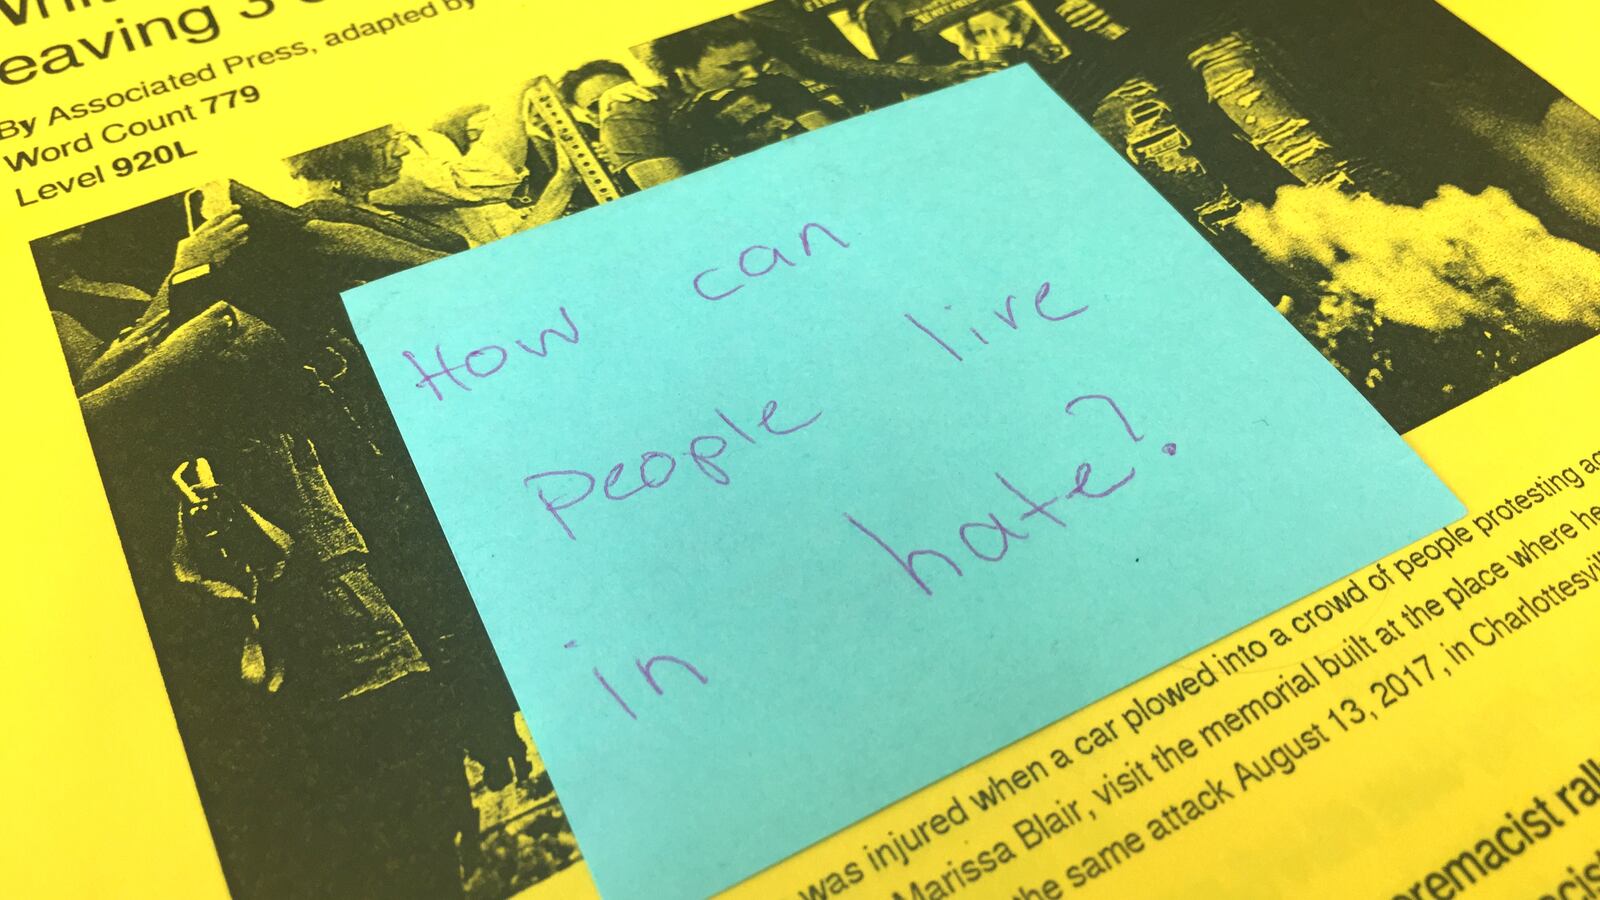 eaving 3
By Associated Press, adapted by
Word Count 779
Level 920L
How can
people live
in hate?
was injured when a car plowed into a crowd of people protesting
Marissa Blair, visit the memorial built at the place where
the same attack August 13, 2017, in